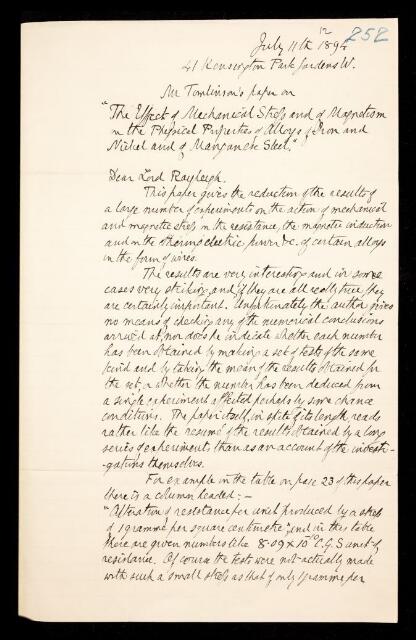 252
12
July 11th 1894
41 Kensington Park Gardens W.
Mr Tomlinson's paper on
"The Effect of Mechanical Stress and of Magnetism
on the Physical Properties of Alloys of Iron and
Nickel and of Manganese Steel."
Dear Lord Rayleigh.
This paper gives the reduction of the results of
a large number of experiments on the action of mechanical
and magnetic stress on the resistance, the magnetic induction
and on the thermo electric power &c. of certain alloys
in the form of wires.
The results are very interesting and in some
cases very striking, and if they are all really true they
are certainly important. Unfortunately the author gives
no means of checking any of the numerical conclusions
arrived at, nor does he indicate whether each number
has been obtained by making a set of tests of the same
kind and by taking the mean of the results obtained for
the set, or whether the number has been deduced from
a single experiment affected perhaps by some chance
conditions. The paper itself, in spite of its length, reads
rather like the resumé of the results obtained by a long
series of experiments than as an account of the investi-
gations themselves.
For example in the table on page 23 of this paper
there is a column headed: -
"Alteration of resistance per unit produced by a stress
of 1 gramme per square centimetre", and in this table
there are given numbers like 8.09 x 10 C.G.S units of
resistance. Of course the tests were not actually made
with such a small stress as that of only 1 gramme per